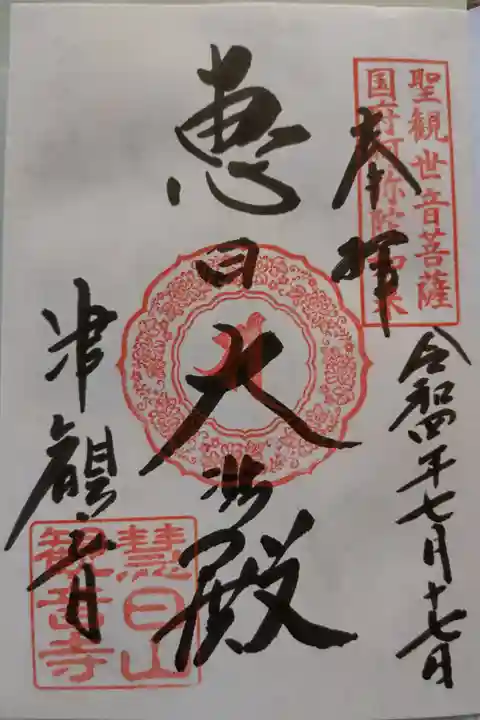 聖観世音菩薩
国府阿弥陀如来
奉拝
令和四年七月十七日
恵日大殿
津観音
慧日山
観音寺